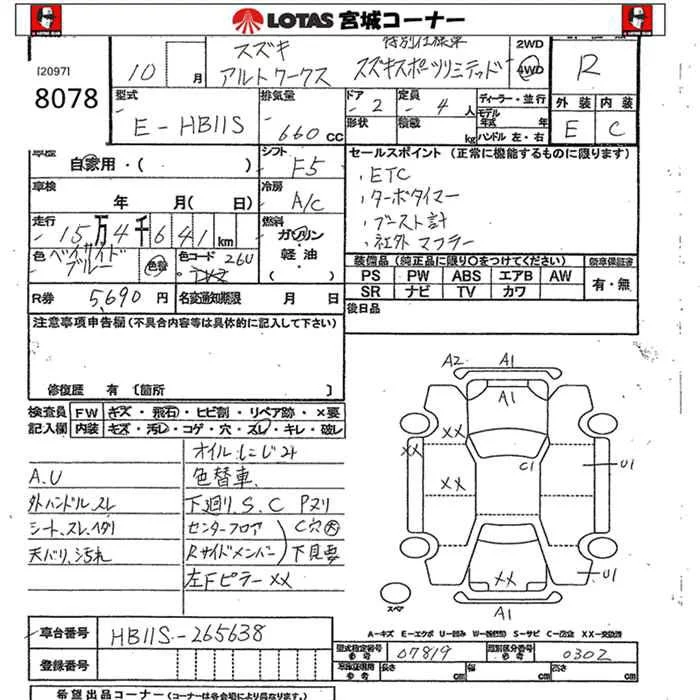 LOTAS 宮城コーナー
[2097]
8078
10 月
スズキ
アルトワークス
特別仕様車
スズキスポーツリミテッド
2WD
4WD
R
型式
E-HB11S
排気量
660 CC
ドア
2
定員
4 人
形状
積載
kg
ディーラー・並行
モデル
年式 年
ハンドル 左・右
外装
内装
E
C
自家用・( )
シフト
F5
車検
年 月( 日)
冷房
A/C
走行
15万4千641 km
燃料
ガソリン
軽油
( )
色
ベイサイド
ブルー
色替
色コード
26U
R券
5,690 円
名変通知期限 月 日
セールスポイント(正常に機能するものに限ります)
・ETC
・ターボタイマー
・ブースト計
・社外マフラー
装備品(純正品に限り○をつけてください)
新車保証書
PS PW ABS エアB AW
SR ナビ TV カワ
有・無
後日品
注意事項申告欄(不具合内容等は具体的に記入して下さい)
修復歴 有 [箇所 ]
検査員
記入欄
FW キズ・飛石・ヒビ割・リペア跡・×要
内装 キズ・汚レ・コゲ・穴・スレ・キレ・破レ
A.U
外ハンドル.スレ
シート.スレ.ヘタリ
天バリ.汚れ
オイルにじみ
色替車.
下廻り.S.C Pヌリ
センターフロア
Rサイドメンバー
C穴大
下見要
左Fピラー××
A2
A1
A1
××
××
××
C1
U1
××
U1
A1
スペア
A-キズ E-エクボ U-凹み W-波(板金跡) S-サビ C-腐食 XX-交換済
車台番号
HB11S-265638
登録番号
型式指定番号
参考
07819
類別区分番号
参考
0302
長さ cm 幅 cm 高さ cm
希望出品コーナー(コーナーは各会場により異なります。)